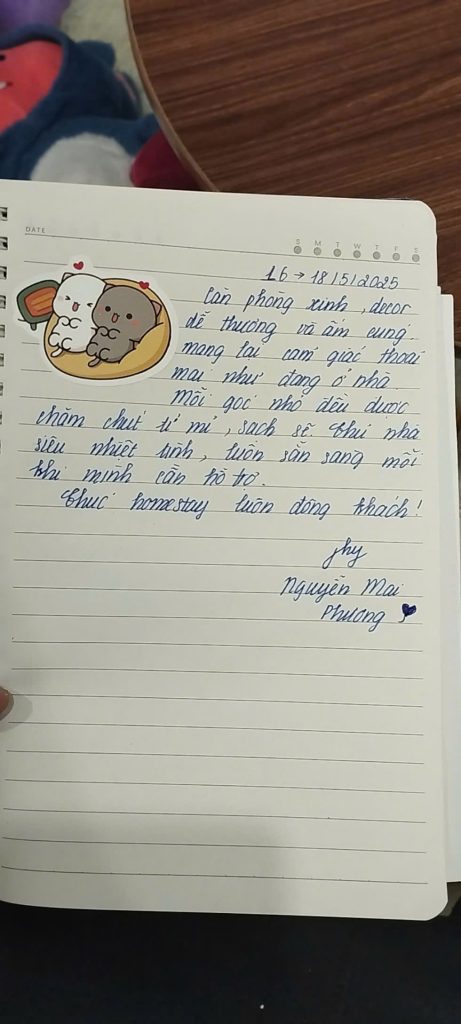 DATE
S M T W T F S
16 → 18/5/2025
Căn phòng xinh, decor
dễ thương và ấm cúng,
mang lại cảm giác thoải
mái như đang ở nhà.
Mỗi góc nhỏ đều được
chăm chút tỉ mỉ, sạch sẽ. Chủ nhà
siêu nhiệt tình, luôn sẵn sàng mỗi
khi mình cần hỗ trợ.
Chúc homestay luôn đông khách!
Nguyễn Mai
Phương